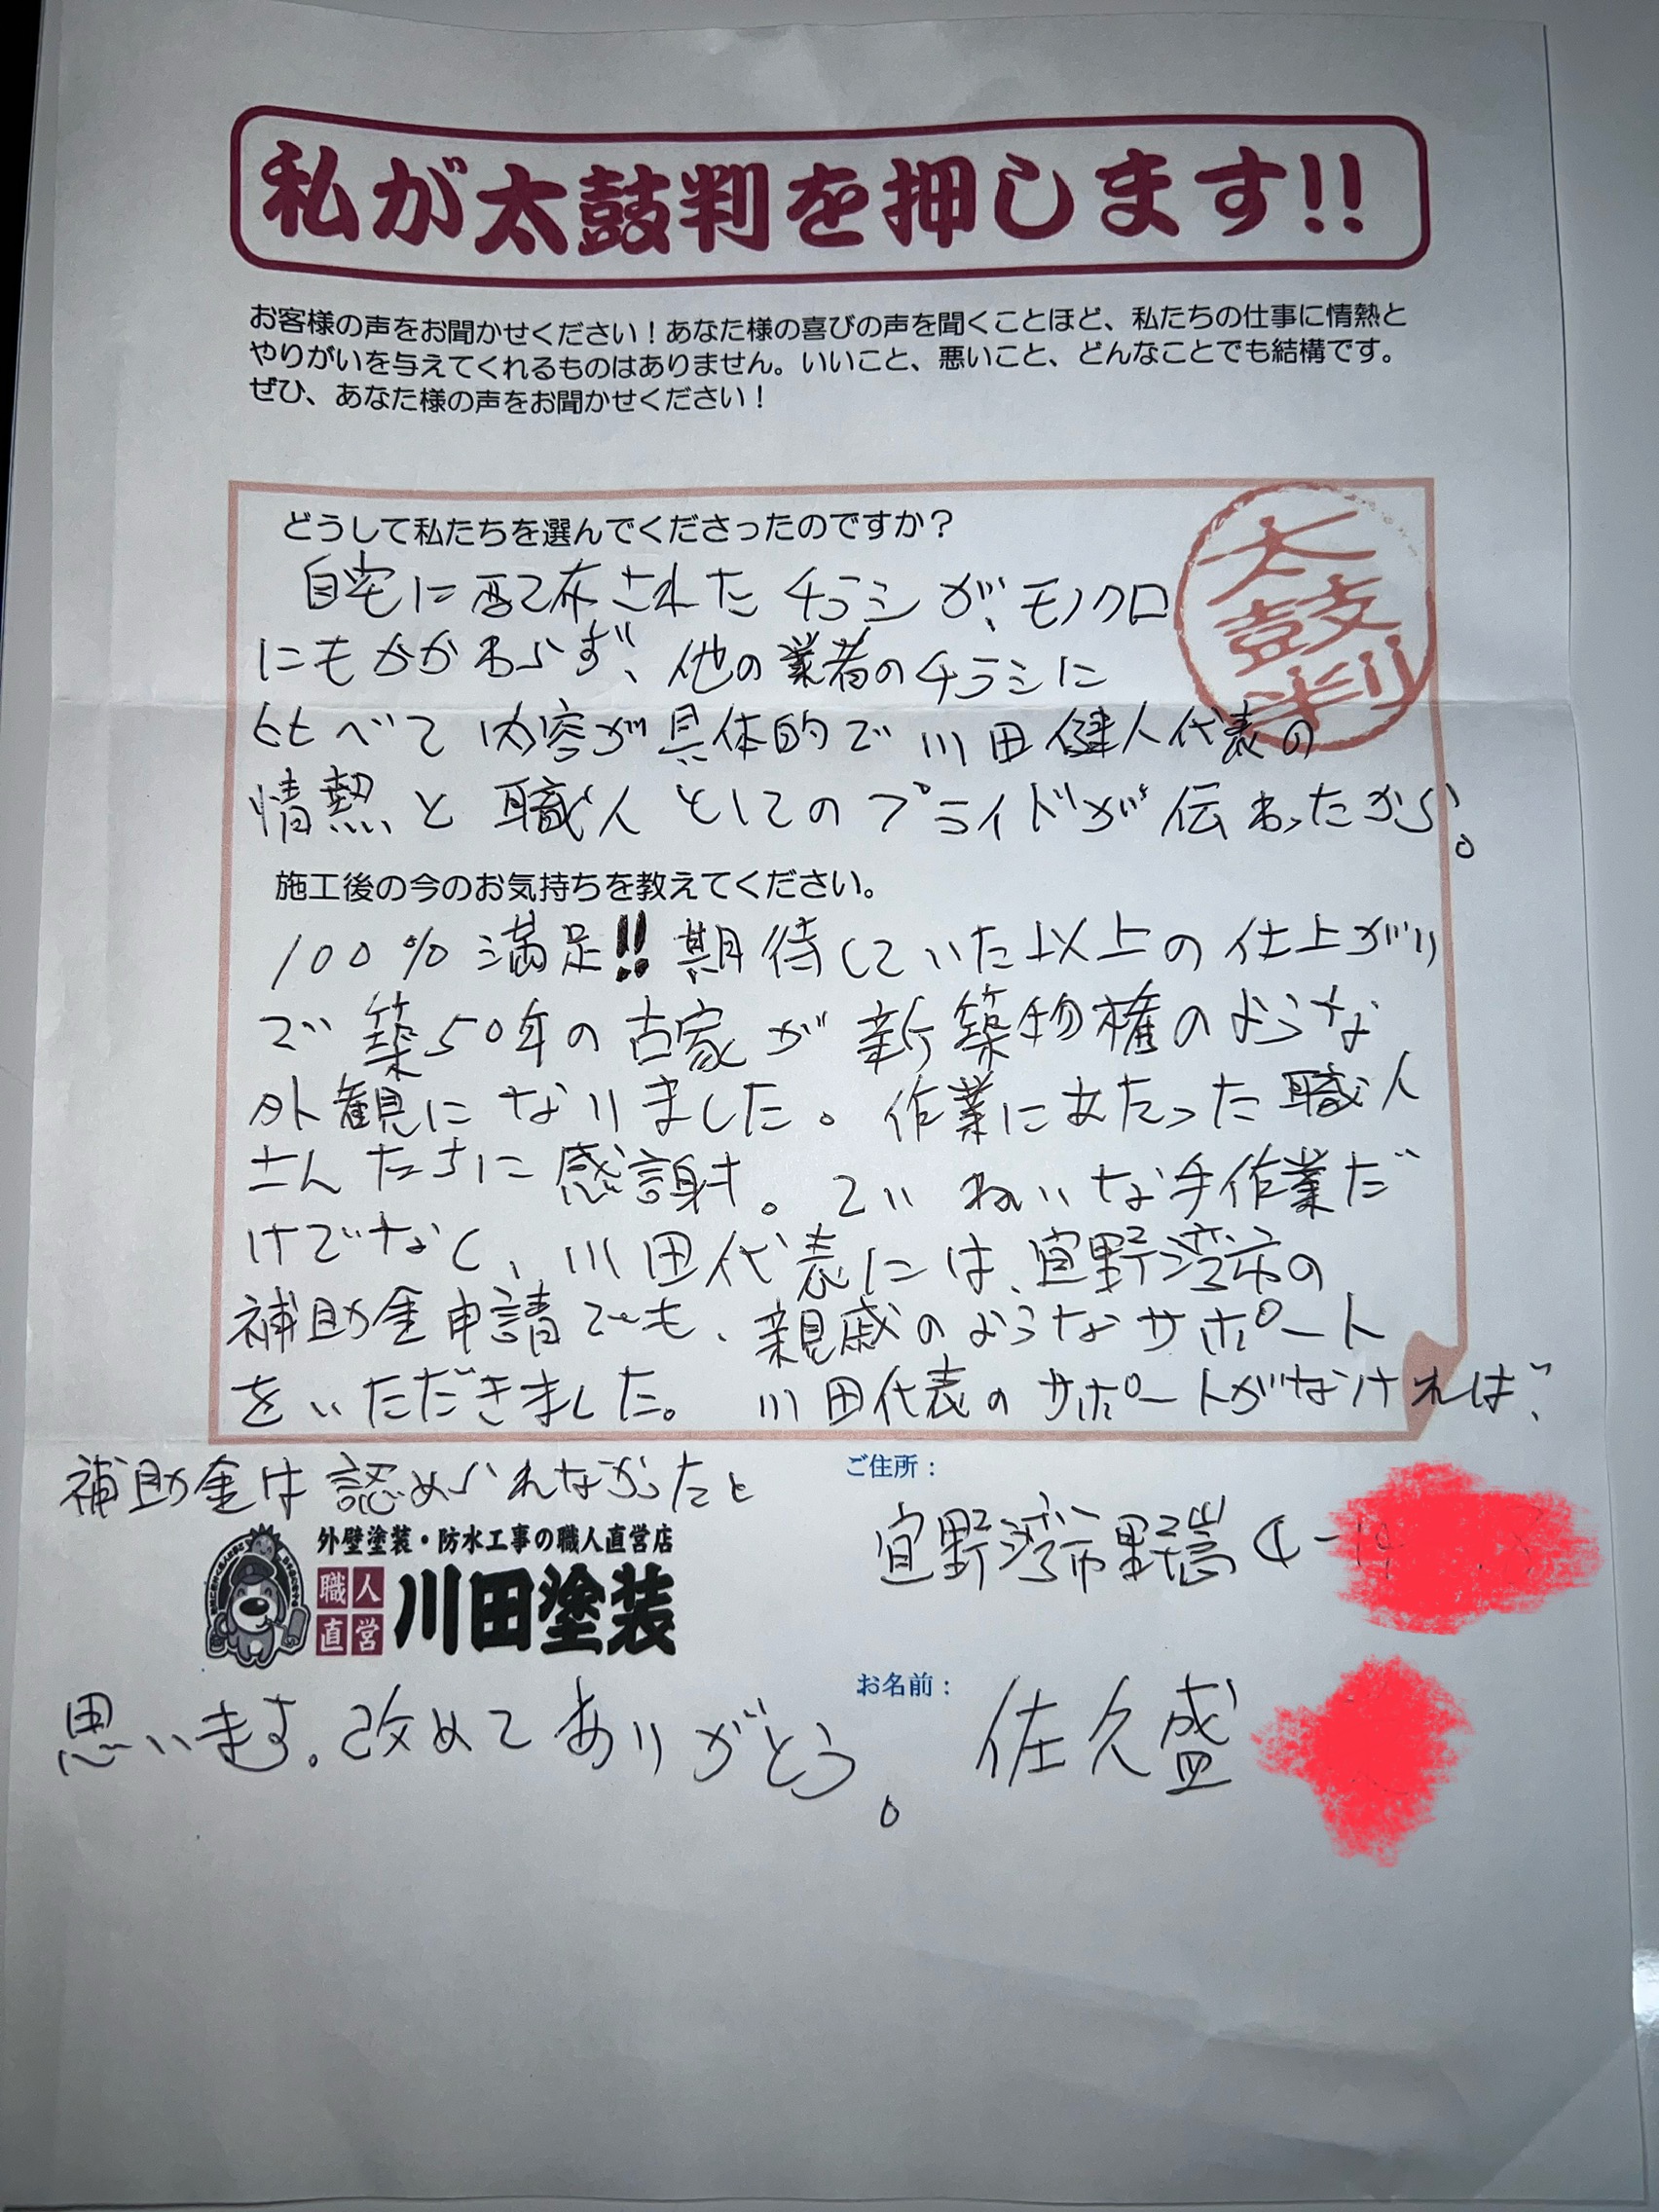 私が太鼓判を押します!!
お客様の声をお聞かせください！あなた様の喜びの声を聞くことほど、私たちの仕事に情熱と
やりがいを与えてくれるものはありません。いいこと、悪いこと、どんなことでも結構です。
ぜひ、あなた様の声をお聞かせください！
太鼓判
どうして私たちを選んでくださったのですか？
自宅に配布されたチラシが、モノクロ
にもかかわらず、他の業者のチラシに
比べて内容が具体的で川田健人代表の
情熱と職人としてのプライドが伝わったから。
施工後の今のお気持ちを教えてください。
100%満足!!期待していた以上の仕上がり
で築50年の古家が新築物権のような
外観になりました。作業にあたった職人
さんたちに感謝。ていねいな手作業だ
けでなく、川田代表には、宜野湾市の
補助金申請でも、親戚のようなサポート
をいただきました。川田代表のサポートがなければ、
補助金は認められなかったと
外壁塗装・防水工事の職人直営店
職人直営 川田塗装
思います。改めてありがとう。
ご住所：
宜野湾市野嵩4-19
お名前：
佐久盛